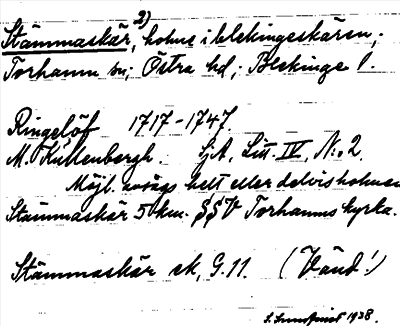 Stämmaskär 2), holme i blekingeskären,
Torhamn sn; Östra hd; Blekinge l.
Ringelöf 1717-1747.
M. Kullenbergh. SjA, Litt. IV, N:o 2.
Möjl. avsågs helt eller delvis holmen
Stämmaskär 5 km. SSV Torhamns kyrka.
Stämmaskär ek, G.11. (Vänd!)
1938.